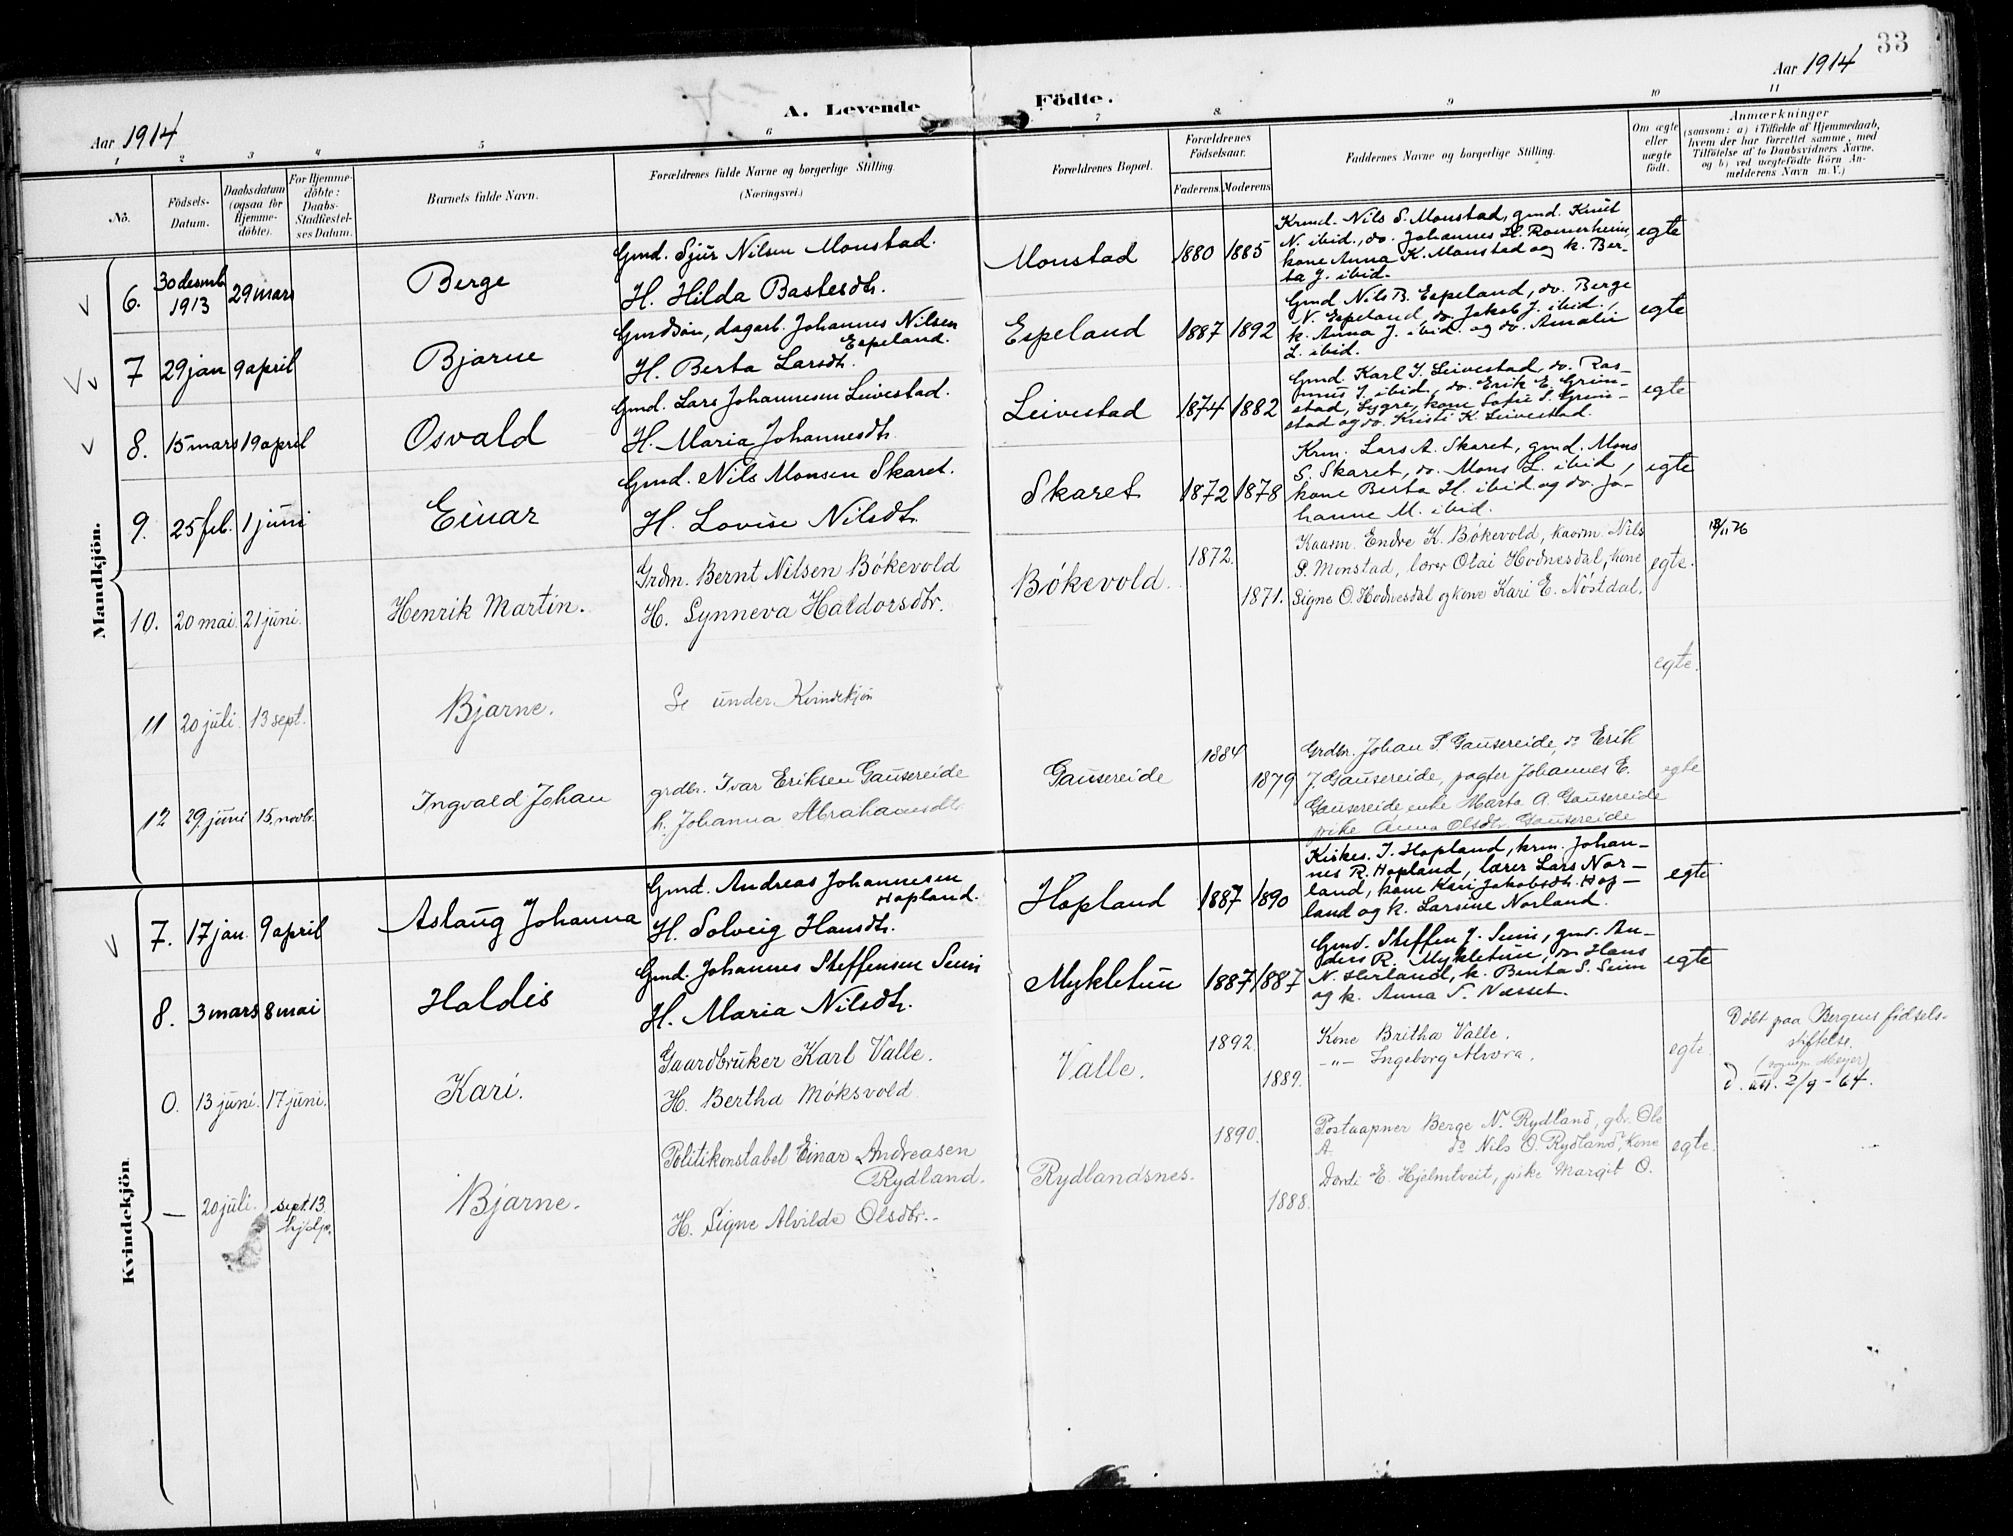 33
Aar 1914
A. Levende Födte.
Aar 1914
1 2 3 4 5 6 7 8 9 10 11
No.
Födsels-Datum.
Daabsdatum (ogsaa for Hjemme-döbte).
For Hjemme-döbte: Daabs-Stadfæstel-ses Datum.
Barnets fulde Navn.
Forældrenes fulde Navne og borgerlige Stilling.
(Næringsvei.)
Forældrenes Bopæl.
Forældrenes Födselsaar.
Faderens. Moderens.
Faddernes Navne og borgerlige Stilling.
Om ægte eller uægte födt.
Anmærkninger
(saasom: a) i Tilfælde af Hjemmedaab,
hvem der har forrettet samme, med
Tilföielse af to Daabsvidners Navne.
og b) ved uægtefödte Börn An-
melderens Navn m. V.)
Mandkjön.
6. 30 desmb. 1913 29 mars Berge
Gmd. Sjur Nilsen Monstad.
H. Hilda Bastesdtr.
Monstad 1880 1885
Krmd. Nils S. Monstad, gmd. Knut
N. ibid., do. Johannes H. Romerheim,
kone Anna K. Monstad og k. Ber-
ta J. ibid.
egte
7 29 jan 9 april Bjarne
Gmdsøn, dagarb. Johannes Nilsen
Espeland.
H. Berta Larsdtr.
Espeland 1887 1892
Gmd. Nils B. Espeland, do. Berge
N. Espeland, do. Jakob J. ibid.,
k. Anna J. ibid. og do. Amalie
L. ibid.
egte
8. 15 mars 19 april Osvald
Gmd. Lars Johannesen Leivestad.
H. Maria Johannesdtr.
Leivestad 1874 1882
Gmd. Karl J. Leivestad, do. Ras-
mus J. ibid., do. Erik E. Grim-
stad, Lygre, kone Sofie S. Grim-
stad og do. Kristi K. Leivestad.
egte
9. 25 feb. 1 juni Einar
Gmd. Nils Monsen Skaret.
H. Lovise Nilsdtr.
Skaret 1872 1878
Krm. Lars A. Skaret, gmd. Mons
S. Skaret, do. Mons L. ibid,
kone Berta H. ibid. og do. Jo-
hanne M. ibid.
egte
10. 20 mai. 21 juni. Henrik Martin.
Grdm. Bernt Nilsen Bökevold
H. Synneva Haldorsdtr.
Bökevold. 1872. 1871.
Kaarm. Endre K. Bökevold, kaarm. Nils
P. Monstad, lærer Olai Hodnesdal, kone
Signe O. Hodnesdal og kone Kari E. Nöstdal.
egte.
11 20 juli. 13 sept. Bjarne.
Se under Kvindekjön
egte.
12 29. juni 15. novbr. Ingvald Johan
grdbr. Ivar Eriksen Gausereide
h. Johanna Abrahamsdtr.
Gausereide 1884 1879
Grdbr. Johan S Gausereide, do Erik
J. Gausereide, pagter Johannes E.
Gausereide enke Marta A. Gausereide
pike Anna Olsdtr. Gausereide
egte
Kvindekjön
7. 17 jan. 9 april Aslaug Johanna
Gmd. Andreas Johannesen
Hopland.
H. Solveig Hansdtr.
Hopland 1887 1890
Kirkes. I. Hopland, krm. Johan-
nes R. Hopland, lærer Lars Nor-
land, kone Kari Jakobsdtr. Hop-
land og k. Larsine Norland.
egte
8. 3 mars 8 mai Haldis
Gmd. Johannes Steffensen Seim
H. Maria Nilsdtr.
Mykletun 1887 1887
Gmd. Steffen J. Seim, gmd. An-
ders R. Mykletun, sn Hans
N. Herland, k. Berita S. Seim
og k. Anna S. Næsset.
egte
0. 13 juni. 17 juni. Kari.
Gaardbruker Karl Valle.
H. Bertha Möksvold.
Valle. 1892. 1889.
Kone Britha Valle.
-"- Ingeborg Alvora.
egte.
Döbt paa Bergens födsels-
stiftelse.
d. att. 2/9-64.
— 20 juli. sept. 13. Bjarne.
Politikonstabel Einar Andreasen
Rydland.
H. Signe Alvilde Olsdtr.
Rydlandsnes. 1890. 1888.
Postaapner Berge N. Rydland, gbr. Ole
A. do Nils O. Rydland, Kone
Dordi E. Hjelmtveit, pike Margit O.
egte.